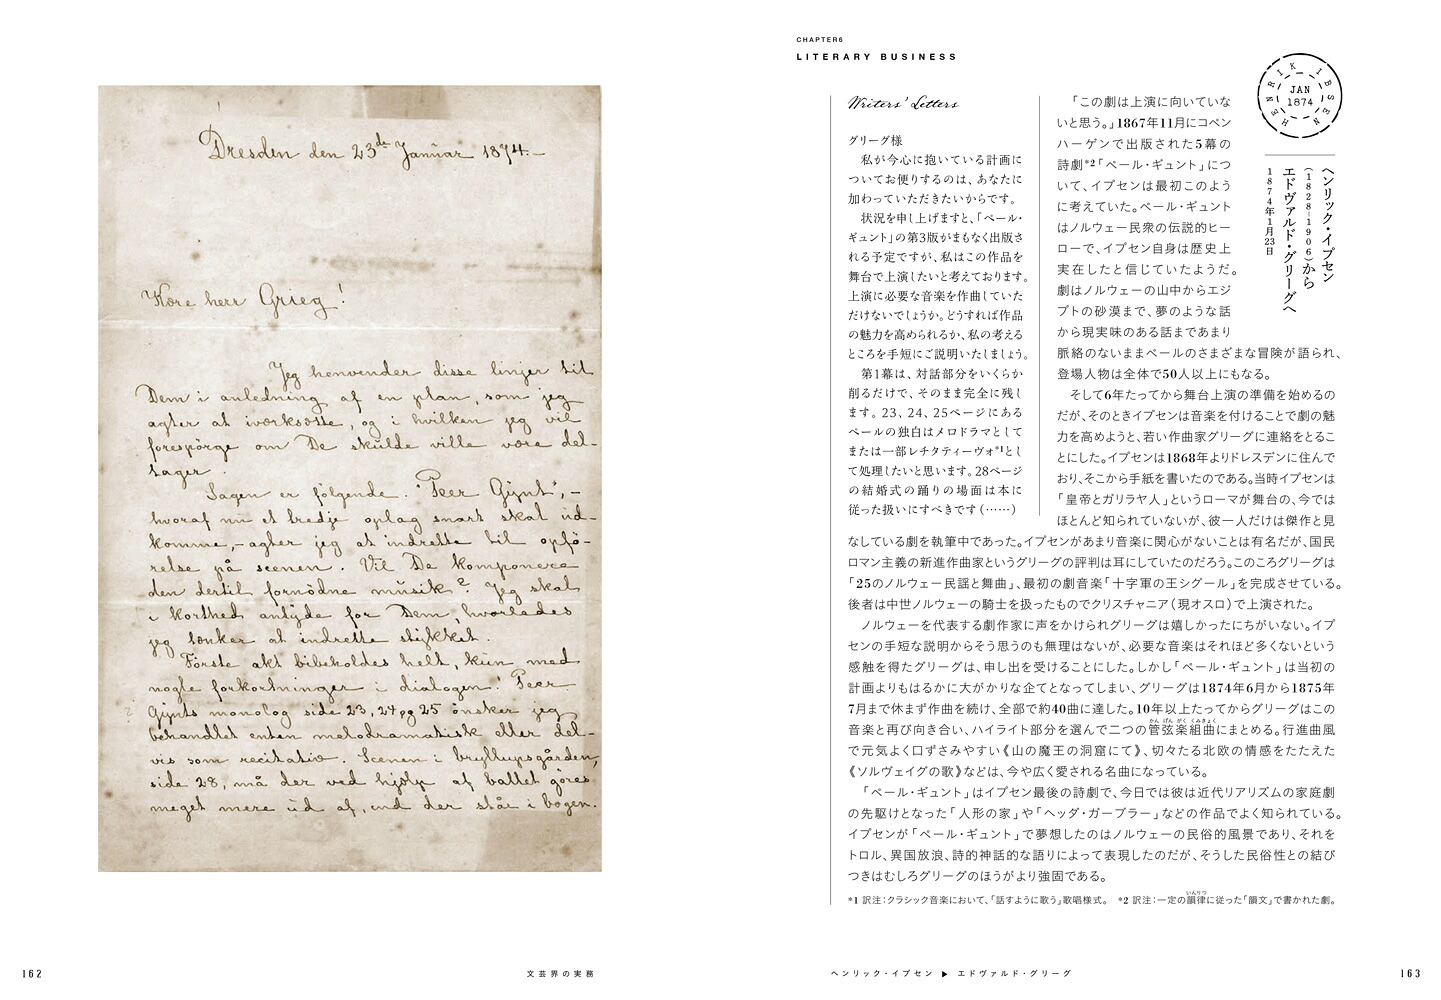 Dresden den 23de Januar 1874.-
Kære herr Grieg!
Jeg henvender disse linjer til
Dem i anledning af en plan, som jeg
agter at iværksætte, og i hvilken jeg vil
forespörge om De skulde ville være del-
tager.
Sagen er fölgende. "Peer Gynt", -
hvoraf nu et tredje oplag snart skal ud-
komme, - agter jeg at indrette til opfö-
relse på scenen. Vil De komponere
den dertil fornödne musik? Jeg skal
i korthed antyde for Dem, hvorledes
jeg tænker at indrette stykket.
Förste akt bibeholdes helt, kun med
nogle forkortninger i dialogen. Peer
Gynts monolog side 23, 24 og 25 ønsker jeg
behandlet enten melodramatisk eller del-
vis som recitativ. Scenen i bryllupsgården,
side 28, må der ved hjælp af ballet göres
meget mere ud af, end der står i bogen.
162
文芸界の実務
CHAPTER6
LITERARY BUSINESS
HENRIK IBSEN
JAN
1874
ヘンリック・イプセン
(1828–1906)から
エドヴァルド・グリーグへ
1874年1月23日
Writers' Letters
グリーグ様
私が今心に抱いている計画に
ついてお便りするのは、あなたに
加わっていただきたいからです。
状況を申し上げますと、「ペール・
ギュント」の第3版がまもなく出版さ
れる予定ですが、私はこの作品を
舞台で上演したいと考えております。
上演に必要な音楽を作曲していた
だけないでしょうか。どうすれば作品
の魅力を高められるか、私の考える
ところを手短にご説明いたしましょう。
第1幕は、対話部分をいくらか
削るだけで、そのまま完全に残し
ます。23、24、25ページにある
ペールの独白はメロドラマとして
または一部レチタティーヴォ*1とし
て処理したいと思います。28ページ
の結婚式の踊りの場面は本に
従った扱いにすべきです(……)
「この劇は上演に向いていな
いと思う。」1867年11月にコペン
ハーゲンで出版された5幕の
詩劇*2「ペール・ギュント」につ
いて、イプセンは最初このよう
に考えていた。ペール・ギュント
はノルウェー民衆の伝説的ヒー
ローで、イプセン自身は歴史上
実在したと信じていたようだ。
劇はノルウェーの山中からエジ
プトの砂漠まで、夢のような話
から現実味のある話まであまり
脈絡のないままペールのさまざまな冒険が語られ、
登場人物は全体で50人以上にもなる。
そして6年たってから舞台上演の準備を始めるの
だが、そのときイプセンは音楽を付けることで劇の魅
力を高めようと、若い作曲家グリーグに連絡をとるこ
とにした。イプセンは1868年よりドレスデンに住んで
おり、そこから手紙を書いたのである。当時イプセンは
「皇帝とガリラヤ人」というローマが舞台の、今では
ほとんど知られていないが、彼一人だけは傑作と見
なしている劇を執筆中であった。イプセンがあまり音楽に関心がないことは有名だが、国民
ロマン主義の新進作曲家というグリーグの評判は耳にしていたのだろう。このころグリーグは
「25のノルウェー民謡と舞曲」、最初の劇音楽「十字軍の王シグール」を完成させている。
後者は中世ノルウェーの騎士を扱ったものでクリスチャニア(現オスロ)で上演された。
ノルウェーを代表する劇作家に声をかけられグリーグは嬉しかったにちがいない。イプ
センの手短な説明からそう思うのも無理はないが、必要な音楽はそれほど多くないという
感触を得たグリーグは、申し出を受けることにした。しかし「ペール・ギュント」は当初の
計画よりもはるかに大がかりな企てとなってしまい、グリーグは1874年6月から1875年
7月まで休まず作曲を続け、全部で約40曲に達した。10年以上たってからグリーグはこの
音楽と再び向き合い、ハイライト部分を選んで二つの管弦楽組曲にまとめる。行進曲風
かんげんがくくみきょく
で元気よく口ずさみやすい《山の魔王の洞窟にて》、切々たる北欧の情感をたたえた
《ソルヴェイグの歌》などは、今や広く愛される名曲になっている。
「ペール・ギュント」はイプセン最後の詩劇で、今日では彼は近代リアリズムの家庭劇
の先駆けとなった「人形の家」や「ヘッダ・ガーブラー」などの作品でよく知られている。
イプセンが「ペール・ギュント」で夢想したのはノルウェーの民俗的風景であり、それを
トロル、異国放浪、詩的神話的な語りによって表現したのだが、そうした民俗性との結び
つきはむしろグリーグのほうがより強固である。
*1 訳注:クラシック音楽において、「話すように歌う」歌唱様式。 *2 訳注:一定の韻律に従った「韻文」で書かれた劇。
いんりつ
ヘンリック・イプセン ▶ エドヴァルド・グリーグ
163